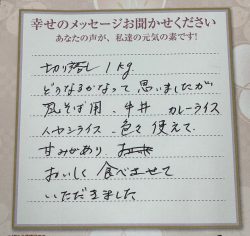 幸せのメッセージお聞かせください
あなたの声が、私達の元気の素です!
切り落し 1kg
どうなるかなって思いましたが
焼そば用、牛丼 カレーライス
ハヤシライス、色々使えて
甘みがあり
おいしく食べさせて
いただきました